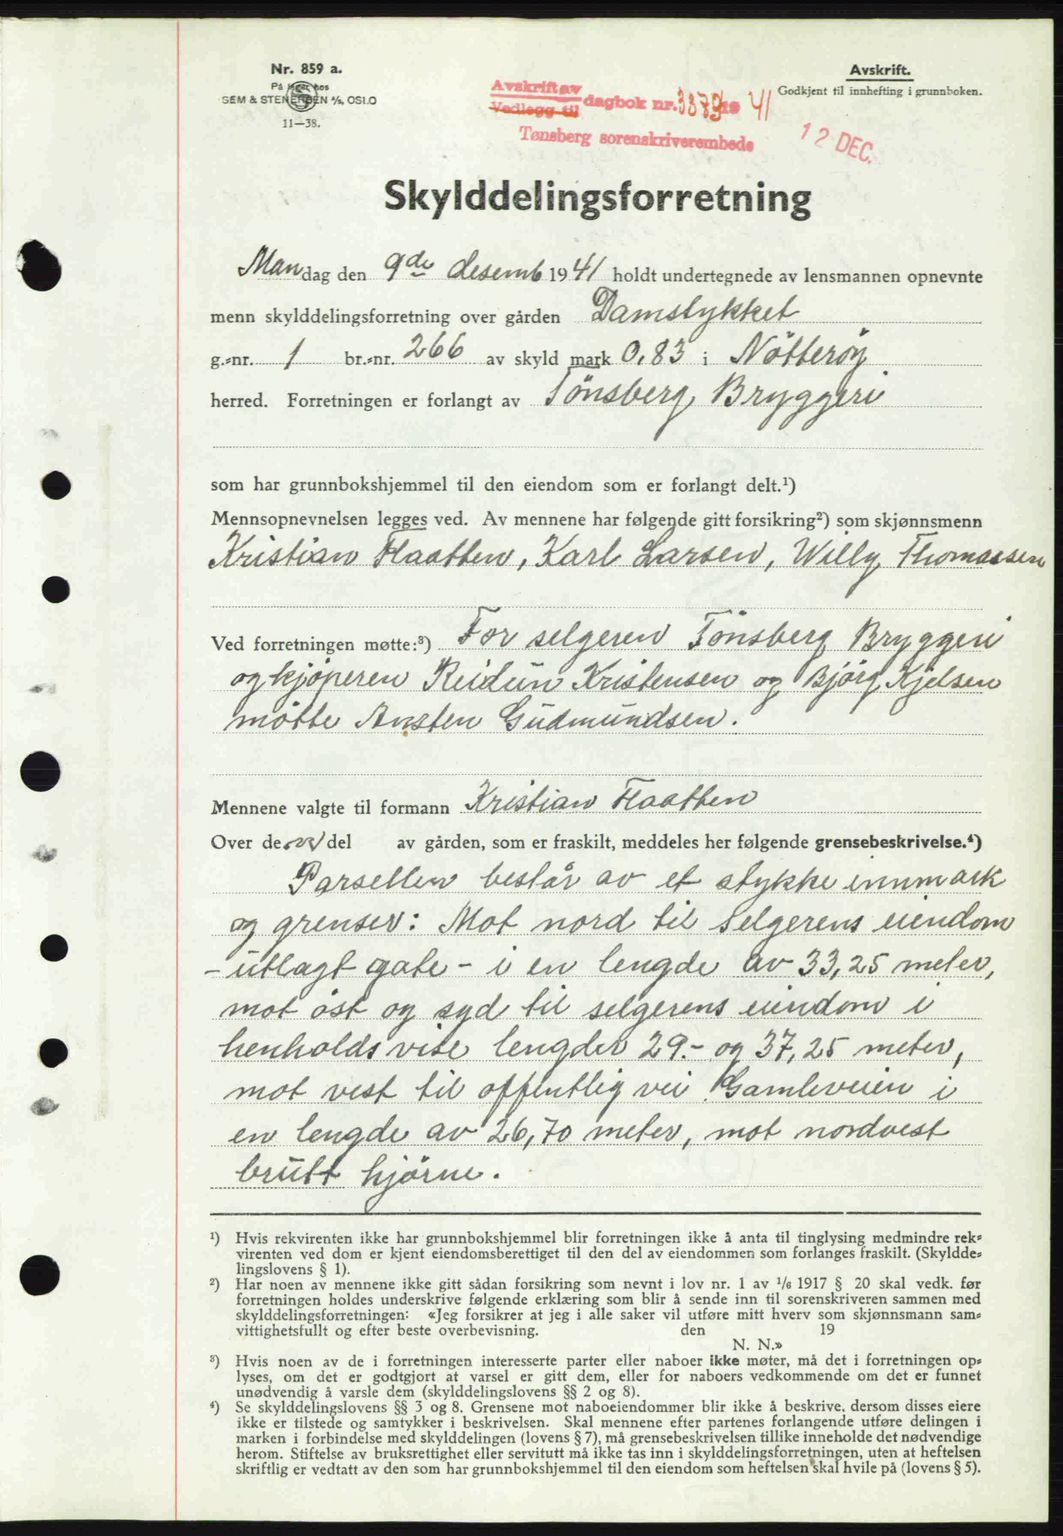 Nr. 859 a.
På lager hos
SEM & STENERSEN A/S, OSLO
11—38.
Avskrift av
Vedlegg til dagbok nr. 3379 19 41
Tønsberg sorenskriverembede
Avskrift.
Godkjent til innhefting i grunnboken.
12 DEC.
Skylddelingsforretning
Mandag den 9de desemb 1941 holdt undertegnede av lensmannen opnevnte
menn skylddelingsforretning over gården Damstykket
g.-nr. 1 br.-nr. 266 av skyld mark 0,83 i Nötteröy
herred. Forretningen er forlangt av Tönsberg Bryggeri
som har grunnbokshjemmel til den eiendom som er forlangt delt.¹)
Mennsopnevnelsen legges ved. Av mennene har følgende gitt forsikring²) som skjønnsmenn
Kristian Haatten, Karl Larsen, Willy Thomassen
Ved forretningen møtte:³) For selgeren Tönsberg Bryggeri
og kjöperen Reidun Kristensen og Björg Kjelsen
mötte Ansten Gudmundsen.
Mennene valgte til formann Kristian Haatten
Over de del av gården, som er fraskilt, meddeles her følgende grensebeskrivelse.⁴)
Parsellen består av et stykke innmark
og grenser: Mot nord til selgerens eiendom
- utlagt gate - i en lengde av 33,25 meter,
mot öst og syd til selgerens eiendom i
henholdsvise lengder 29.- og 37,25 meter,
mot vest til offentlig vei Gamleveien i
en lengde av 26,70 meter, mot nordvest
brutt hjörne.
¹) Hvis rekvirenten ikke har grunnbokshjemmel blir forretningen ikke å anta til tinglysing medmindre rek-
virenten ved dom er kjent eiendomsberettiget til den del av eiendommen som forlanges fraskilt. (Skyldde-
lingslovens § 1).
²) Har noen av mennene ikke gitt sådan forsikring som nevnt i lov nr. 1 av 1/6 1917 § 20 skal vedk. før
forretningen holdes underskrive følgende erklæring som blir å sende inn til sorenskriveren sammen med
skylddelingsforretningen: «Jeg forsikrer at jeg i alle saker vil utføre mitt hverv som skjønnsmann sam-
vittighetsfullt og efter beste overbevisning. den 19
N. N.»
³) Hvis noen av de i forretningen interesserte parter eller naboer ikke møter, må det i forretningen op-
lyses, om det er godtgjort at varsel er gitt dem, eller for naboers vedkommende om det er funnet
unødvendig å varsle dem (skylddelingslovens §§ 2 og 8).
⁴) Se skylddelingslovens §§ 3 og 8. Grensene mot naboeiendommer blir ikke å beskrive, dersom disses eiere
ikke er tilstede og samtykker i beskrivelsen. Skal mennene efter partenes forlangende utføre delingen i
marken i forbindelse med skylddelingen (lovens § 7), må grensebeskrivelsen tillike inneholde det nødvendige
herom. Stiftelse av bruksrettighet eller servitutt må ikke tas inn i skylddelingsforretningen, uten at heftelsen
skriftlig er vedtatt av den som har grunnbokshjemmel til den eiendom som heftelsen skal hvile på (lovens § 5).